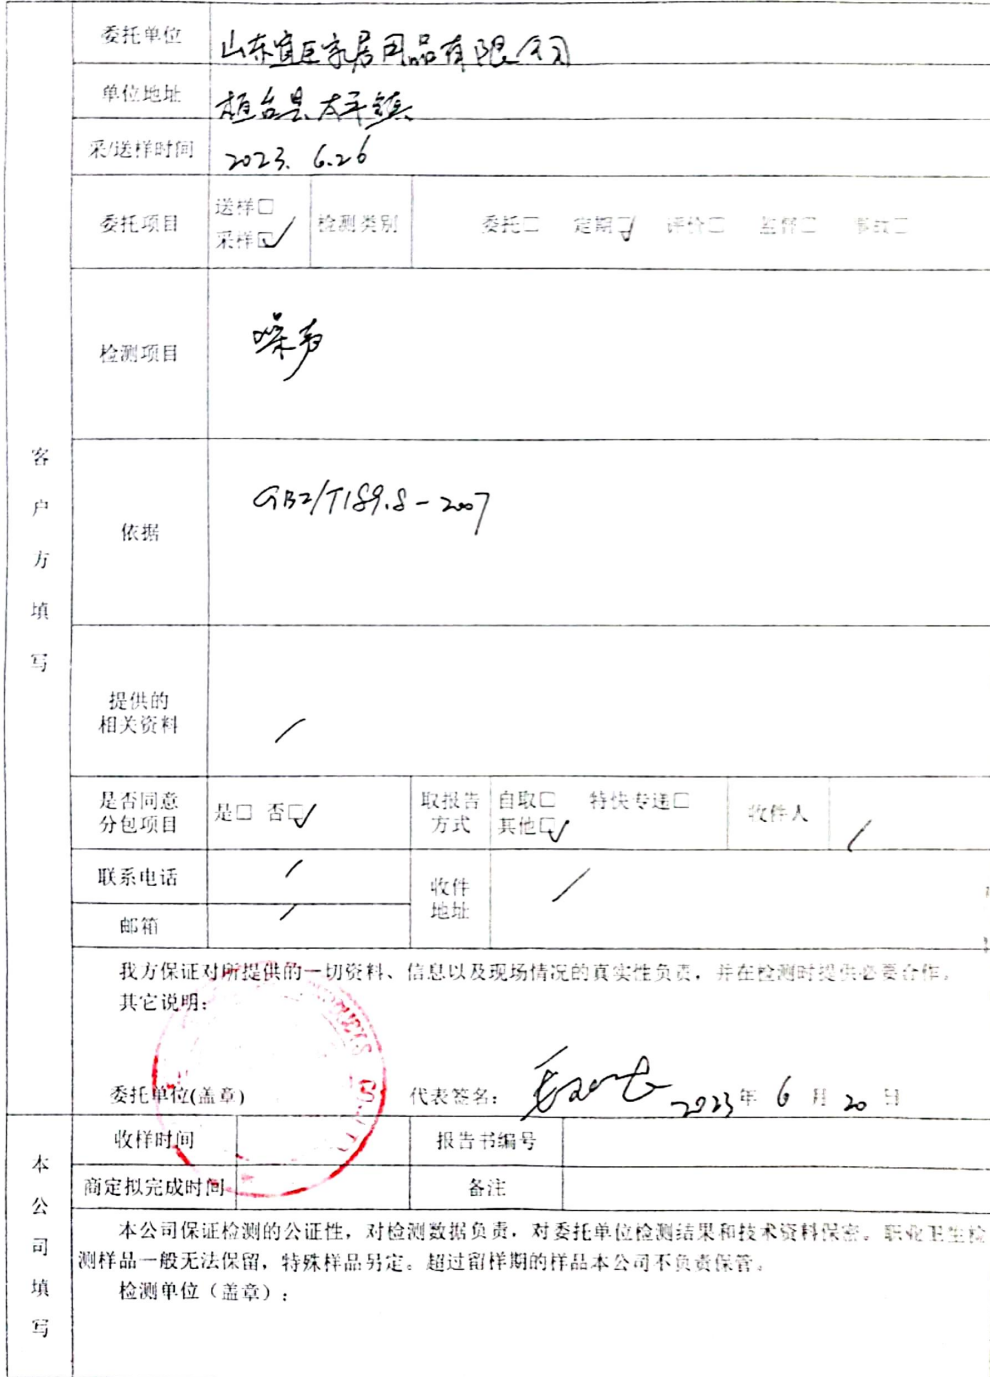 委托单位 山东宜臣家居用品有限公司
单位地址 桓台县 镇
采/送样时间 2023. 6.26
委托项目 送样□ 采样☑ 检测类别 委托□ 定期☑ 评价□ 监督□ 事故□
检测项目 噪声
客户方填写
依据 GBZ/T189.8-2007
提供的
相关资料 /
是否同意
分包项目 是□ 否☑ 取报告
方式 自取□ 特快专递□
其他☑ 收件人 /
联系电话 / 收件
地址 /
邮箱 /
我方保证对所提供的一切资料、信息以及现场情况的真实性负责，并在检测时提供必要合作。
其它说明：
委托单位(盖章) 代表签名： 2023年 6 月 20 日
收样时间 报告书编号
商定拟完成时间 备注
本公司填写
本公司保证检测的公证性，对检测数据负责，对委托单位检测结果和技术资料保密。职业卫生检
测样品一般无法保留，特殊样品另定。超过留样期的样品本公司不负责保管。
检测单位（盖章）：